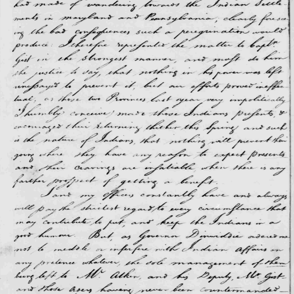 had made of wandering towards the Indian Settle
ments in maryland and Pennsylvania, clearly forsee
ing the bad consequences such a peregrination would
produce I therefore represented the matter to Capt.
Gist in the Strongest manner, and must do him
the justice to say, that nothing in his power was left
unessayed to prevent it, but our efforts proved ineffec
tual, as these two Provinces last year very impolitically
I humbly conceive made those Indians presents, &
encouraged their returning thither this Spring and such
is the nature of Indians, that nothing will prevent their
going where they have any reason to expect presents
and their cravings are insatiable when there is any
farther prospect of getting a benefit.
That my officers constantly have and always
will pay the strictest regard to every circumstance that
may contribute to put, and keep the Indians in a
good humour. But as Governor Dinwiddie ordered me
not to meddle or interfere with Indian Affairs on
any pretence whatever, the sole management of them
being left to Mr. Atkin, and his Deputy, Mr. Gist
and those orders having never been countermanded